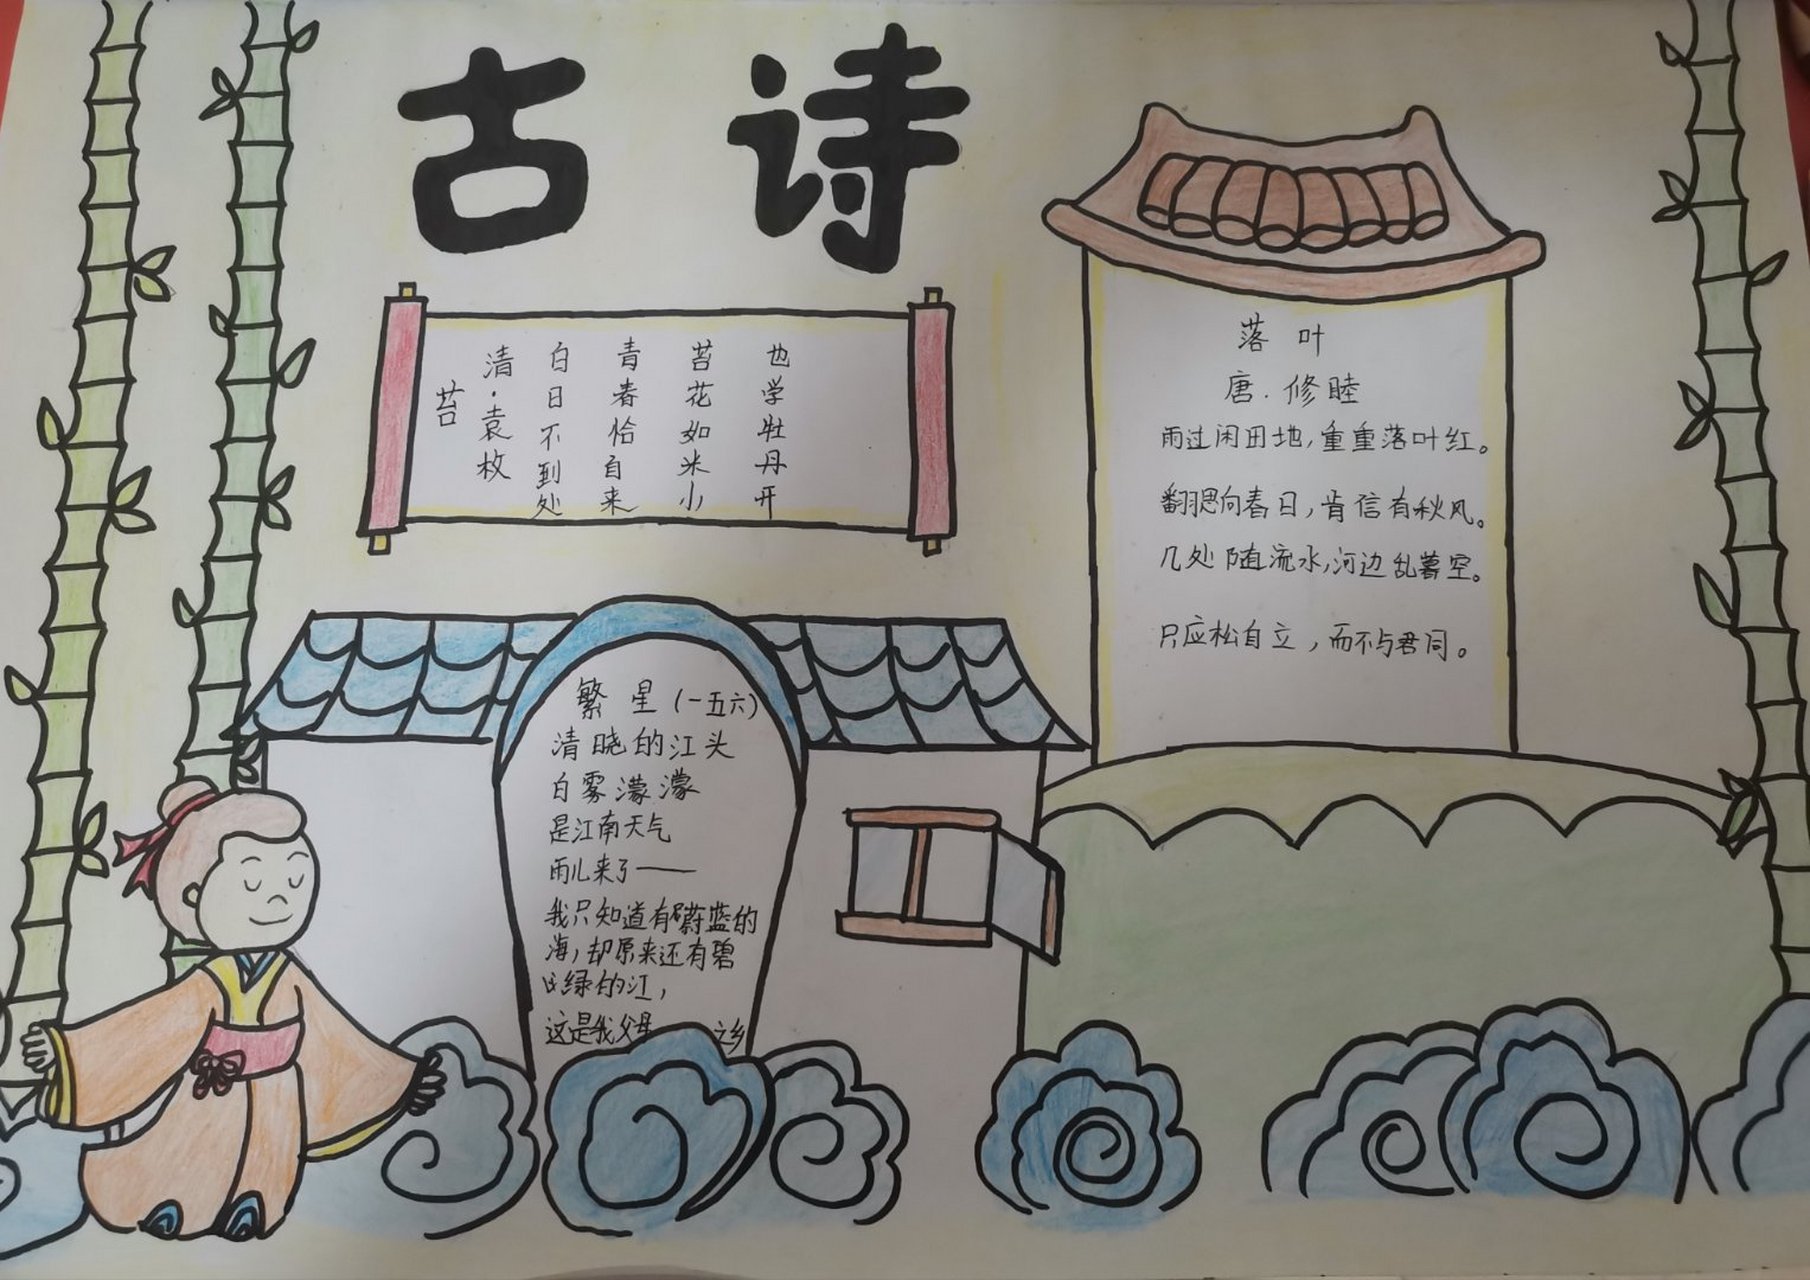 古诗
苔
清·袁枚
白日不到处
青春恰自来
苔花如米小
也学牡丹开
落叶
唐.修睦
雨过闲田地,重重落叶红。
翻思向春日,肯信有秋风。
几处随流水,河边乱暮空。
只应松自立,而不与君同。
繁星(一五六)
清晓的江头
白雾濛濛
是江南天气
雨儿来了——
我只知道有蔚蓝的
海,却原来还有碧
绿的江,
这是我父母之乡